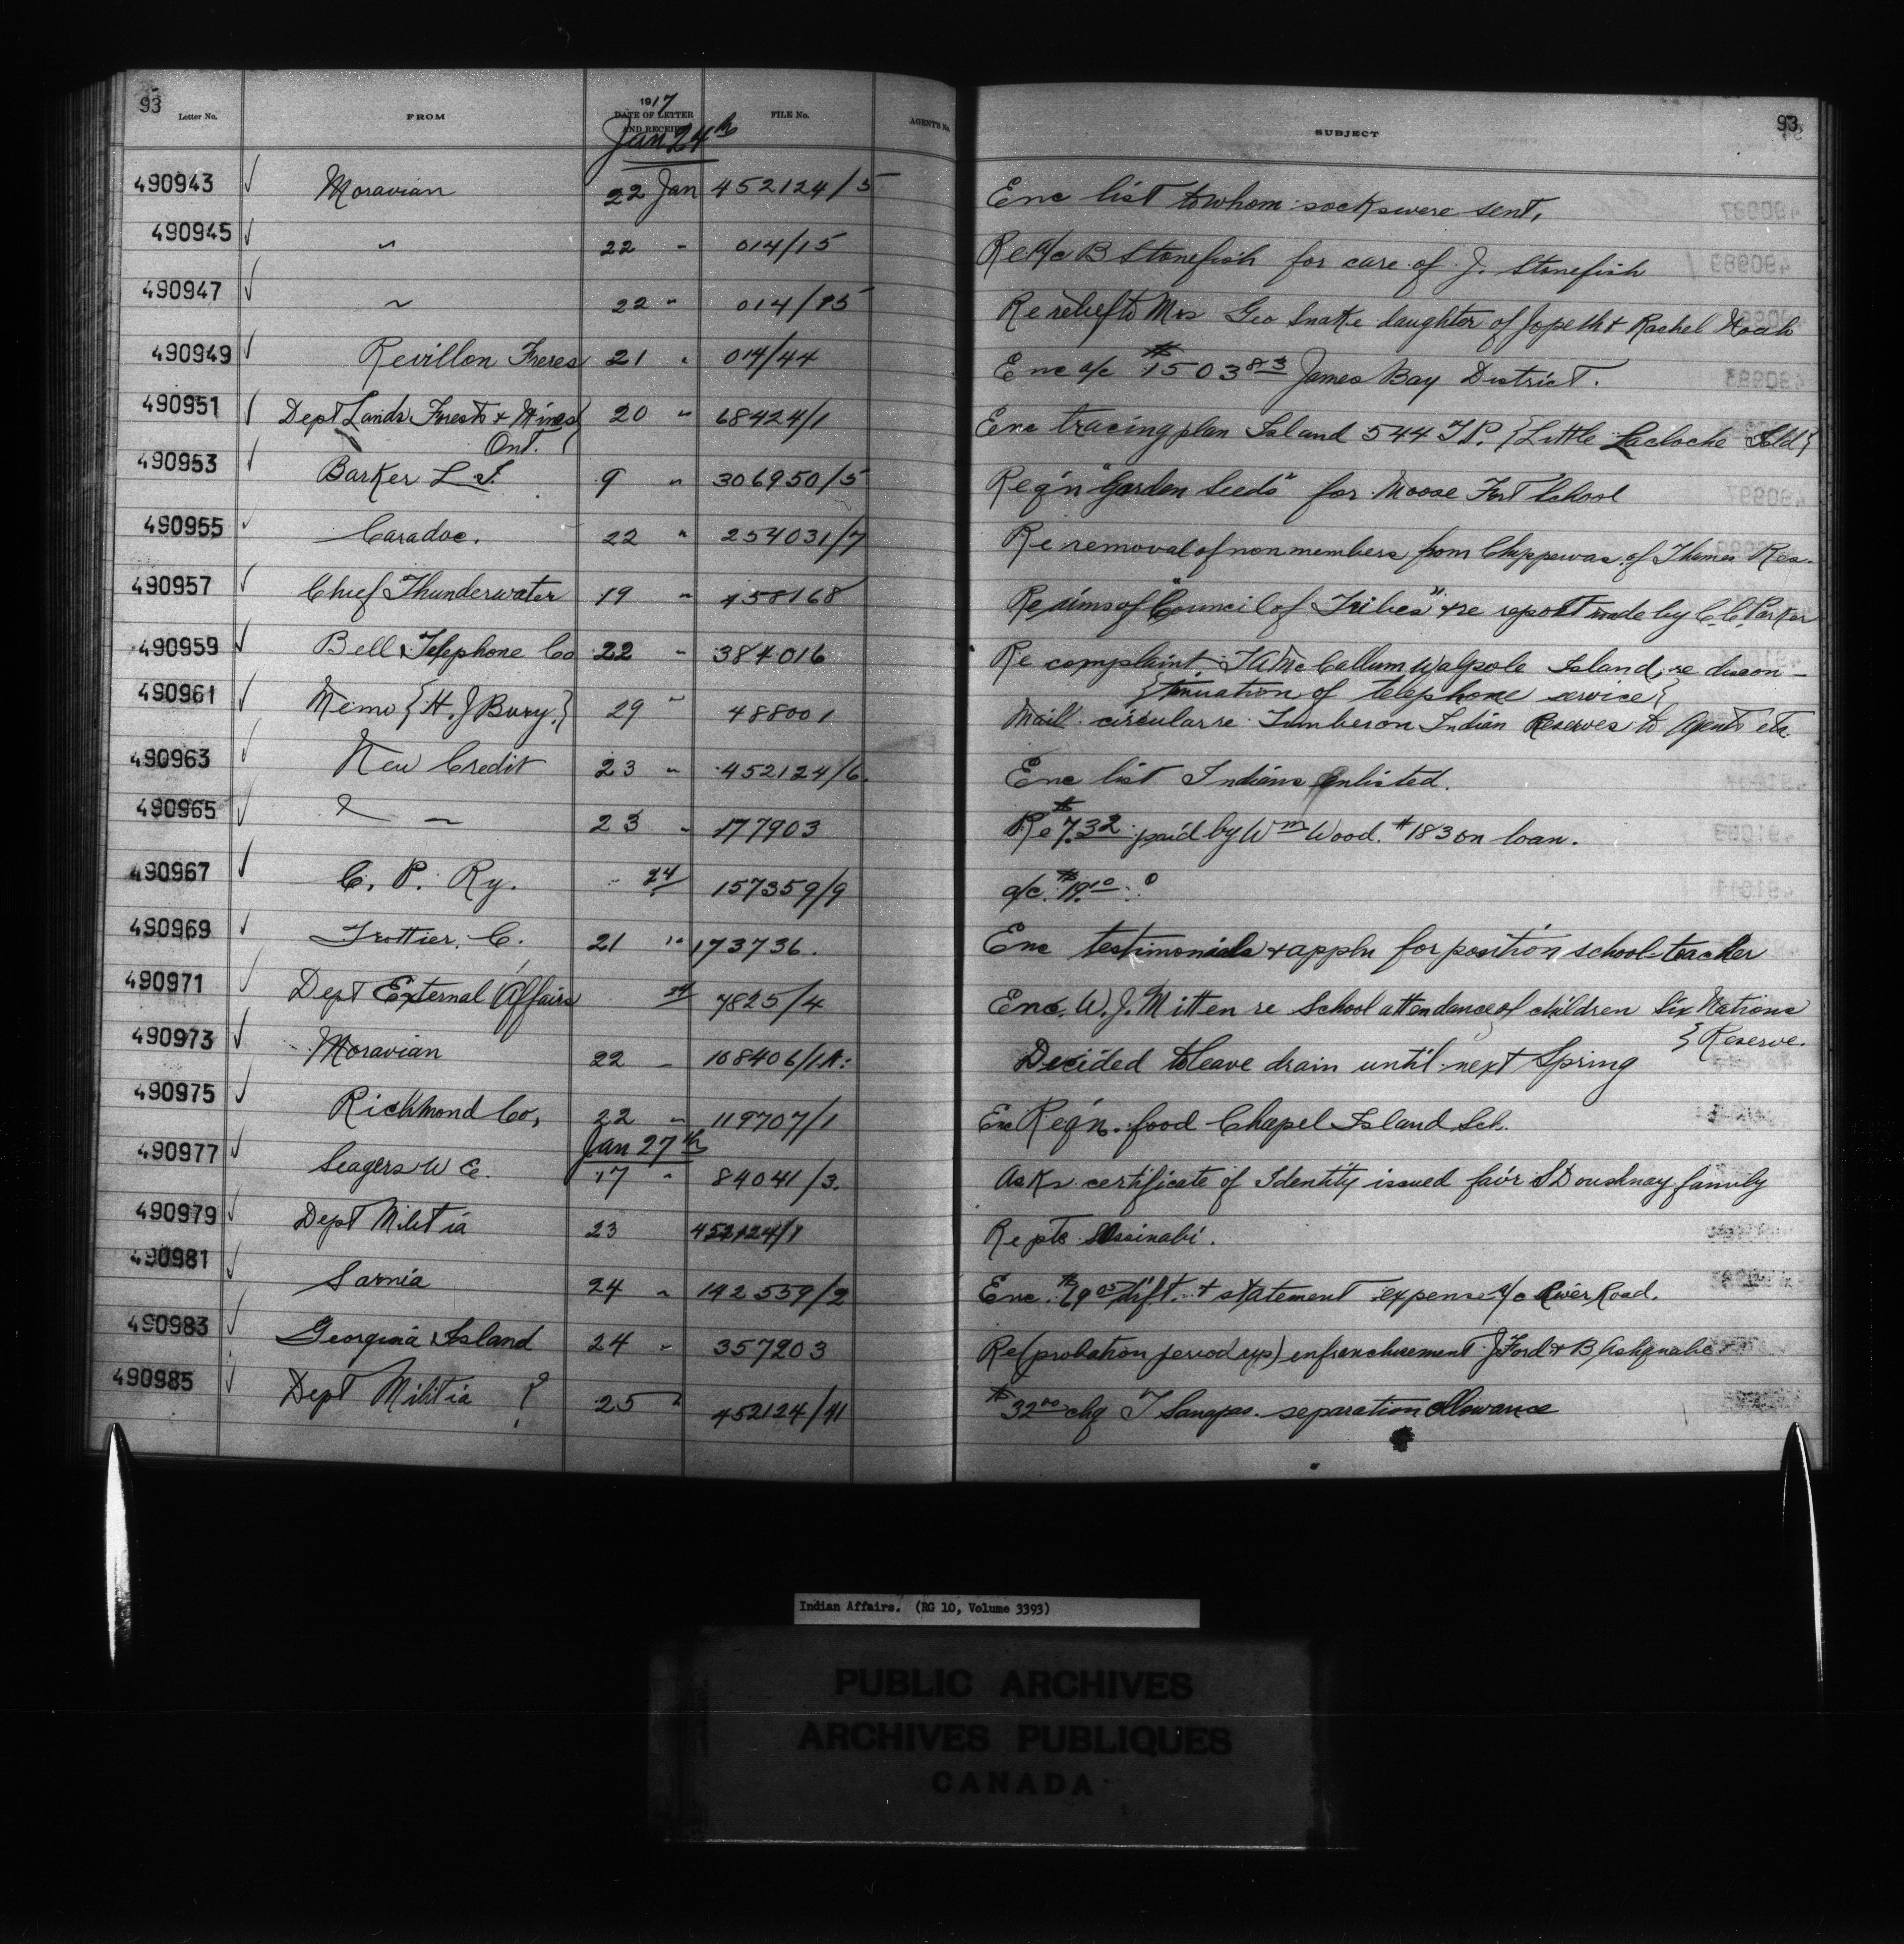 93 93
Letter No. FROM 1917 DATE OF LETTER AND RECEIPT FILE No. AGENT'S No. SUBJECT
Jan 24th
490943 Moravian 22 Jan 452124/5 Enc list to whom socks were sent,
490945 " 22 " 014/15 Re a/c B Stonefish for care of J. Stonefish
490947 " 22 " 014/15 Re relief to Mrs Geo Snake daughter of Jopeth & Rachel Noah
490949 Revillon Freres 21 " 014/44 Enc a/c $1503 83 James Bay District.
490951 Dept Lands Forests & Mines 20 " 68424/1 Enc tracing plan Island 544 T.P. {Little Lacloche Isld}
Ont.
490953 Barker L 9 " 306950/5 Reg'n "Garden Seeds" for Moose Fort School
490955 Caradoc. 22 " 254031/7 Re removal of non members from Chippewas of Thames Res.
490957 Chief Thunderwater 19 " 458168 Re aims of "Council of Tribes" & re report made by C.C. Parker
490959 Bell Telephone Co 22 " 384016 Re complaint McCallum Walpole Island, re discon-
{tinuation of telephone service}
490961 Memo {H. J Bury.} 29 " 488001 Mail circular re Timber on Indian Reserves to Agents etc.
490963 New Credit 23 " 452124/6. Enc list Indians Enlisted.
490965 " " 23 " 177903 Re $7.32 paid by Wm Wood. #183 on loan.
490967 C. P. Ry. 24 157359/9 a/c. $19.10
490969 Trottier. C. 21 " 173736. Enc testimonials & appln for position school-teacher
490971 Dept External Affairs 24 7825/4 Enc. W. J. Mitten re School attendance of children Six Nations
} Reserve.
490973 Moravian 22 " 108406/1A. Decided to leave drain until next Spring
490975 Richmond Co, 22 " 119707/1 Enc Reg'n. food Chapel Island Sch.
Jan 27th
490977 Seagers W E. 17 " 84041/3. Asks certificate of Identity issued fav'r family
490979 Dept Militia 23 452124/1 Re pte Assinabi.
490981 Sarnia 24 " 142539/2 Enc. dft. & statement expense a/c River Road.
490983 Georgina Island 24 " 357203 Re (probation period up) enfranchisement J Ford & B Ashquabe
490985 Dept Militia 25 " 452124/41 $32.00 chq separation allowance
Indian Affairs. (RG 10, Volume 3393)
PUBLIC ARCHIVES
ARCHIVES PUBLIQUES
CANADA